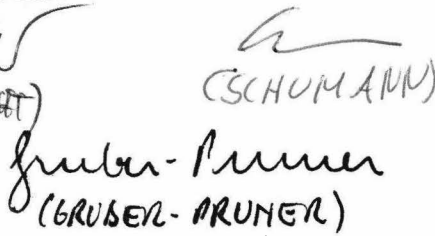 (SCHUMANN)
Gruber-Pruner
(GRUBER-PRUNER)